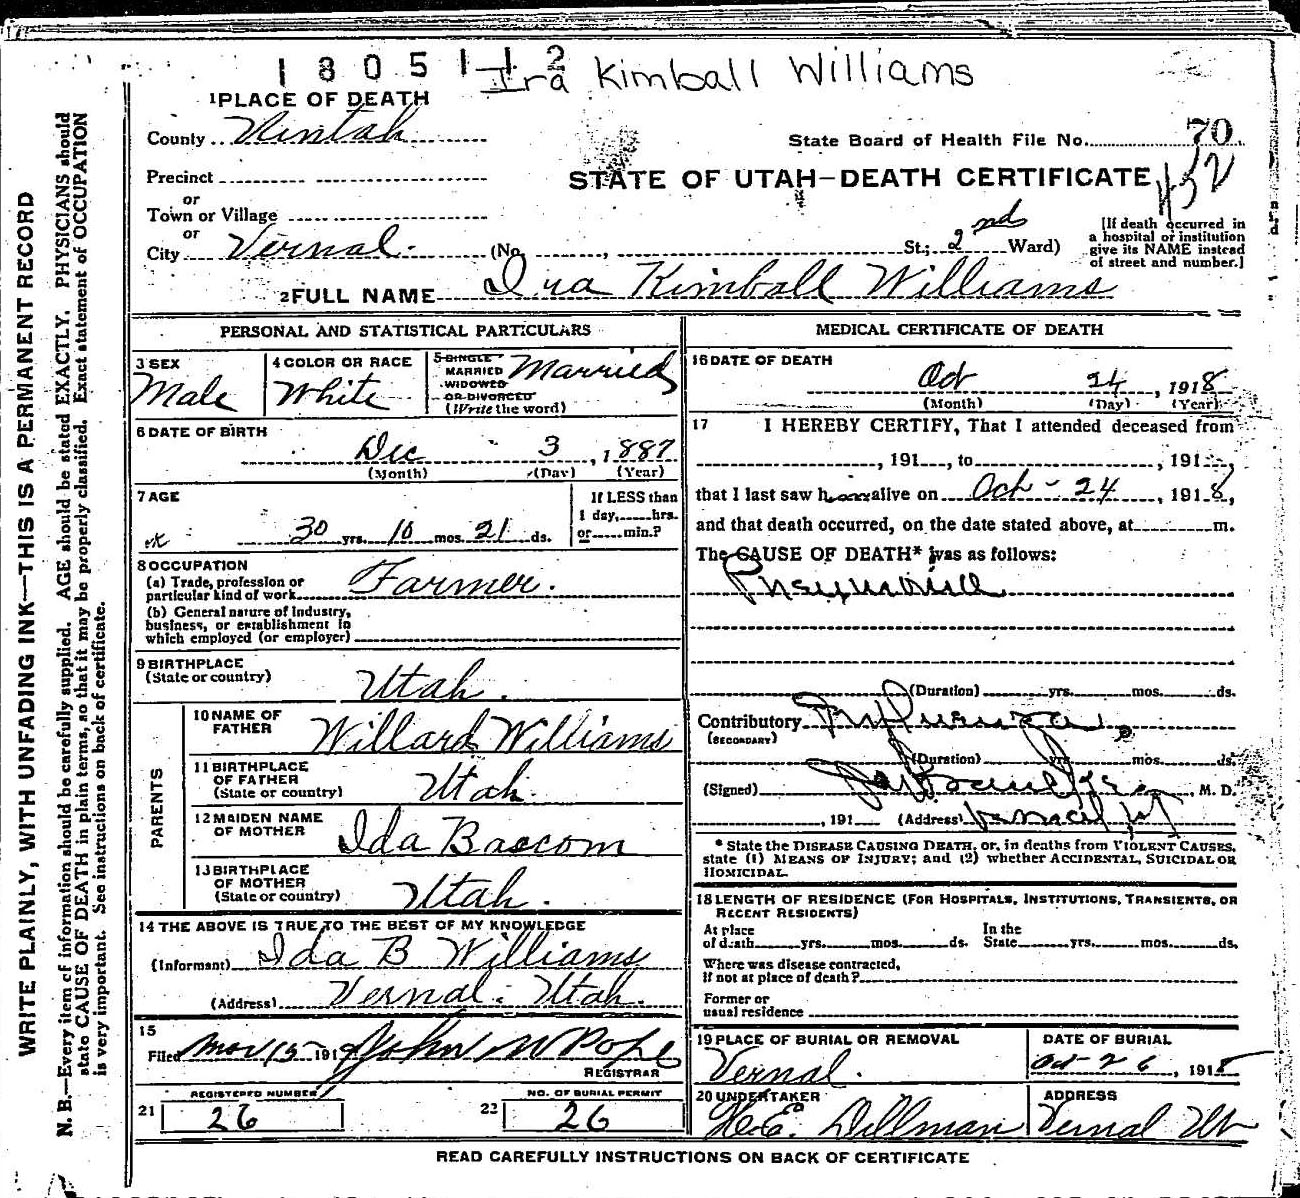 1805112 Ira Kimball Williams
1 PLACE OF DEATH
County Uintah
State Board of Health File No. 70
452
Precinct
STATE OF UTAH—DEATH CERTIFICATE
or
Town or Village
or
City Vernal. (No. , St.; 2nd Ward)
[If death occurred in
a hospital or institution
give its NAME instead
of street and number.]
2 FULL NAME Ira Kimball Williams
PERSONAL AND STATISTICAL PARTICULARS
3 SEX
Male
4 COLOR OR RACE
White
5 SINGLE
MARRIED
WIDOWED
OR DIVORCED
(Write the word)
Married
6 DATE OF BIRTH
Dec 3, 1887
(Month) (Day) (Year)
7 AGE
30 yrs. 10 mos. 21 ds.
If LESS than
1 day, hrs.
or min.?
8 OCCUPATION
(a) Trade, profession or
particular kind of work Farmer.
(b) General nature of Industry,
business, or establishment in
which employed (or employer)
9 BIRTHPLACE
(State or country) Utah.
PARENTS
10 NAME OF
FATHER Willard Williams
11 BIRTHPLACE
OF FATHER
(State or country) Utah.
12 MAIDEN NAME
OF MOTHER Ida Bascom
13 BIRTHPLACE
OF MOTHER
(State or country) Utah.
14 THE ABOVE IS TRUE TO THE BEST OF MY KNOWLEDGE
(Informant) Ida B Williams
(Address) Vernal. Utah.
15
Filed Nov 15 191 John N Pope
REGISTRAR
REGISTERED NUMBER
21 26
NO. OF BURIAL PERMIT
22 26
MEDICAL CERTIFICATE OF DEATH
16 DATE OF DEATH
Oct 24, 1918
(Month) (Day) (Year)
17 I HEREBY CERTIFY, That I attended deceased from
, 191 , to , 191 ,
that I last saw h alive on Oct - 24, 1918,
and that death occurred, on the date stated above, at m.
The CAUSE OF DEATH* was as follows:
(Duration) yrs. mos. ds.
Contributory Influenza.
(SECONDARY)
(Duration) yrs. mos. ds.
(Signed) , M. D.
, 191 (Address) Vernal Ut
* State the DISEASE CAUSING DEATH, or, in deaths from VIOLENT CAUSES,
state (1) MEANS OF INJURY; and (2) whether ACCIDENTAL, SUICIDAL OR
HOMICIDAL.
18 LENGTH OF RESIDENCE (FOR HOSPITALS, INSTITUTIONS, TRANSIENTS, OR
RECENT RESIDENTS)
At place
of death yrs. mos. ds.
In the
State yrs. mos. ds.
Where was disease contracted,
if not at place of death?
Former or
usual residence
19 PLACE OF BURIAL OR REMOVAL
Vernal.
DATE OF BURIAL
Oct-26, 1918
20 UNDERTAKER
H.E. Dillman
ADDRESS
Vernal Ut
READ CAREFULLY INSTRUCTIONS ON BACK OF CERTIFICATE
WRITE PLAINLY, WITH UNFADING INK—THIS IS A PERMANENT RECORD
N. B.—Every item of information should be carefully supplied. AGE should be stated EXACTLY. PHYSICIANS should
state CAUSE OF DEATH in plain terms, so that it may be properly classified. Exact statement of OCCUPATION
is very important. See instructions on back of certificate.